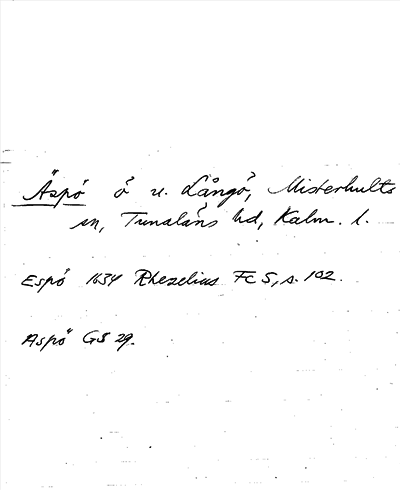 Äspö ö u. Långö, Misterhults
sn, Tunaläns hd, Kalm. l.
Espö 1634 Rhezelius FC5, s. 102.
Äspö GS 29.